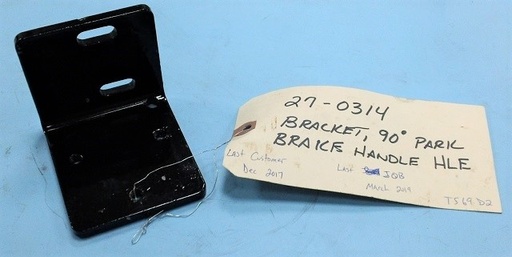 27-0314
BRACKET, 90° PARK
BRAKE HANDLE HLE
Last Customer
Dec 2017
Last JOB
March 2019
T569 D2